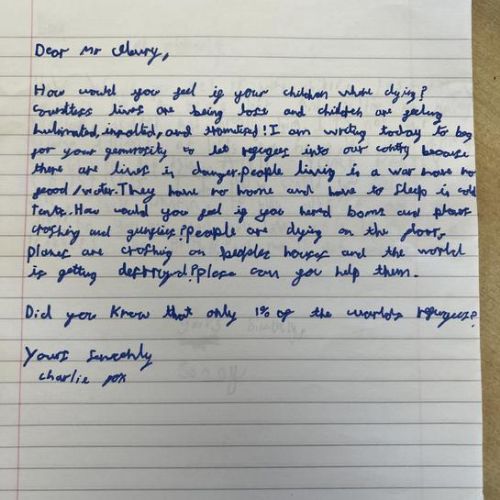 Dear Mr
How would you feel if your children where dying?
Countless lives are being lost and children are feeling
and I am writing today to beg
for your to let refugees into our contry because
there are lives in danger.People living in a war have no
food/water.They have no home and have to sleep in cold
tents.How would you feel if you hered boms and planes
crashing and gunfires?People are dying on the floor,
planes are crashing on peoples houses and the world
is getting destroyd!Please can you help them.
Did you know that only 1% of the worlds refugees?
Yours
Charlie fox